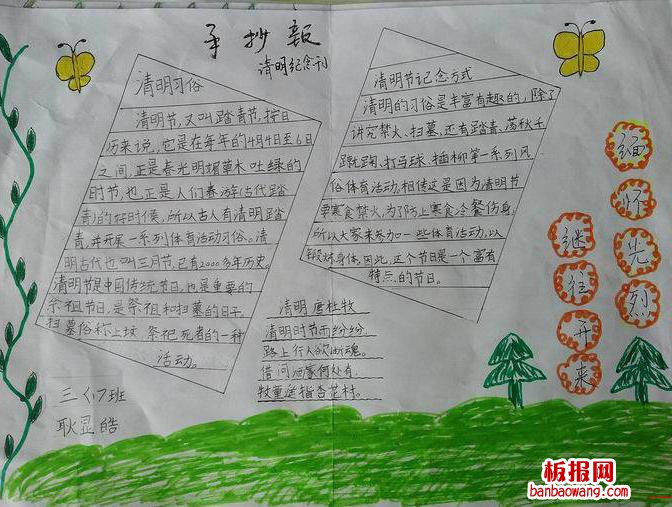 手抄报
清明纪念刊
清明习俗
清明节,又叫踏青节,按日
历来说,它是在每年的4月4日至6日
之间,正是春光明媚草木吐绿的
时节,也正是人们春游(古代踏
青)的好时候,所以古人有清明踏
青,并开展一系列体育活动习俗。清
明古代也叫三月节,已有2000多年历史。
清明节是中国传统节日,也是重要的
祭祖节日,是祭祖和扫墓的日子。
扫墓俗称上坟,祭祀死者的一种
活动。
三(7)班
耿显皓
清明节记念方式
清明的习俗是丰富有趣的,除了
讲究禁火、扫墓,还有踏青、荡秋千
蹴鞠、打马球、插柳等一系列风
俗体育活动。相传这是因为清明节
要寒食禁火,为了防止寒食冷餐伤身,
所以大家来参加一些体育活动,以
锻炼身体。因此,这个节日是一个富有
特点的节日。
清明 唐杜牧
清明时节雨纷纷,
路上行人欲断魂。
借问酒家何处有,
牧童遥指杏花村。
缅怀先烈
继往开来
板报网
banbaowang.com